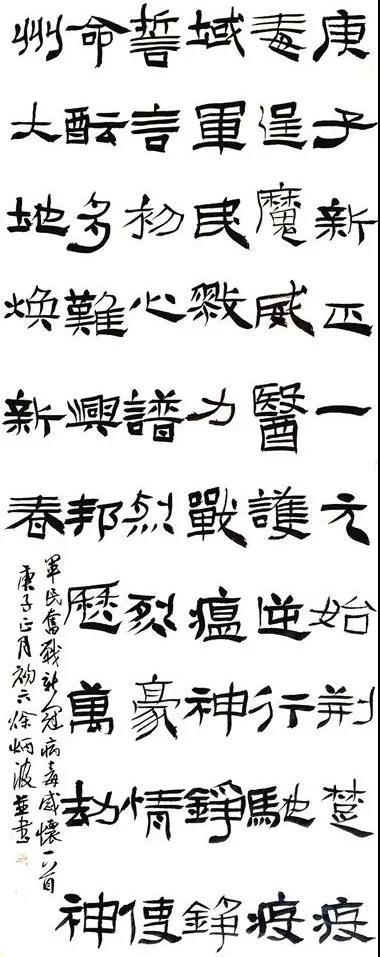 庚子新正一元始荆楚疫
毒逞魔威醫護逆行馳疫
域軍民戮力戰瘟神錚錚
誓言初心譜烈烈豪情使
命酝多難興邦歷萬劫神
州大地焕新春
軍民奮戰新冠病毒感懷一首
庚子正月初六徐炳波並书